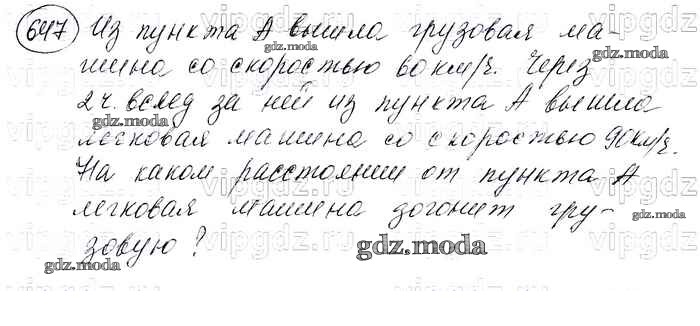 647 Из пункта А вышла грузовая ма-
шина со скоростью 60 км/ч. Через
2 ч. вслед за ней из пункта А вышла
легковая машина со скоростью 90 км/ч.
На каком расстоянии от пункта А
легковая машина догонит гру-
зовую?
gdz.moda
gdz.moda
gdz.moda
gdz.moda
gdz.moda
gdz.moda
vipgdz